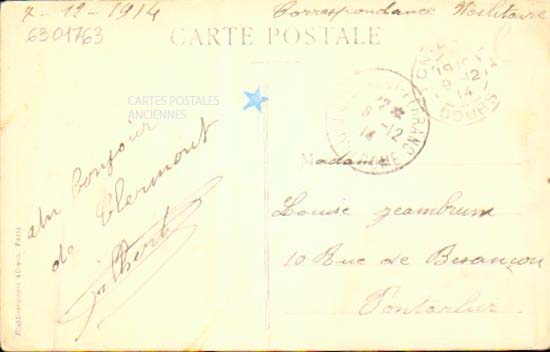 7-12-1914
Correspondance Militaire
6301763
CARTE POSTALE
CARTES POSTALES
ANCIENNES
PONTARLIER
9-12
14
DOUBS
FERRAND
8-12
14
un Bonjour
de Clermont
Gilbert
Madame
Louise Jeambrun
10 Rue de Besançon
Pontarlier
Paris